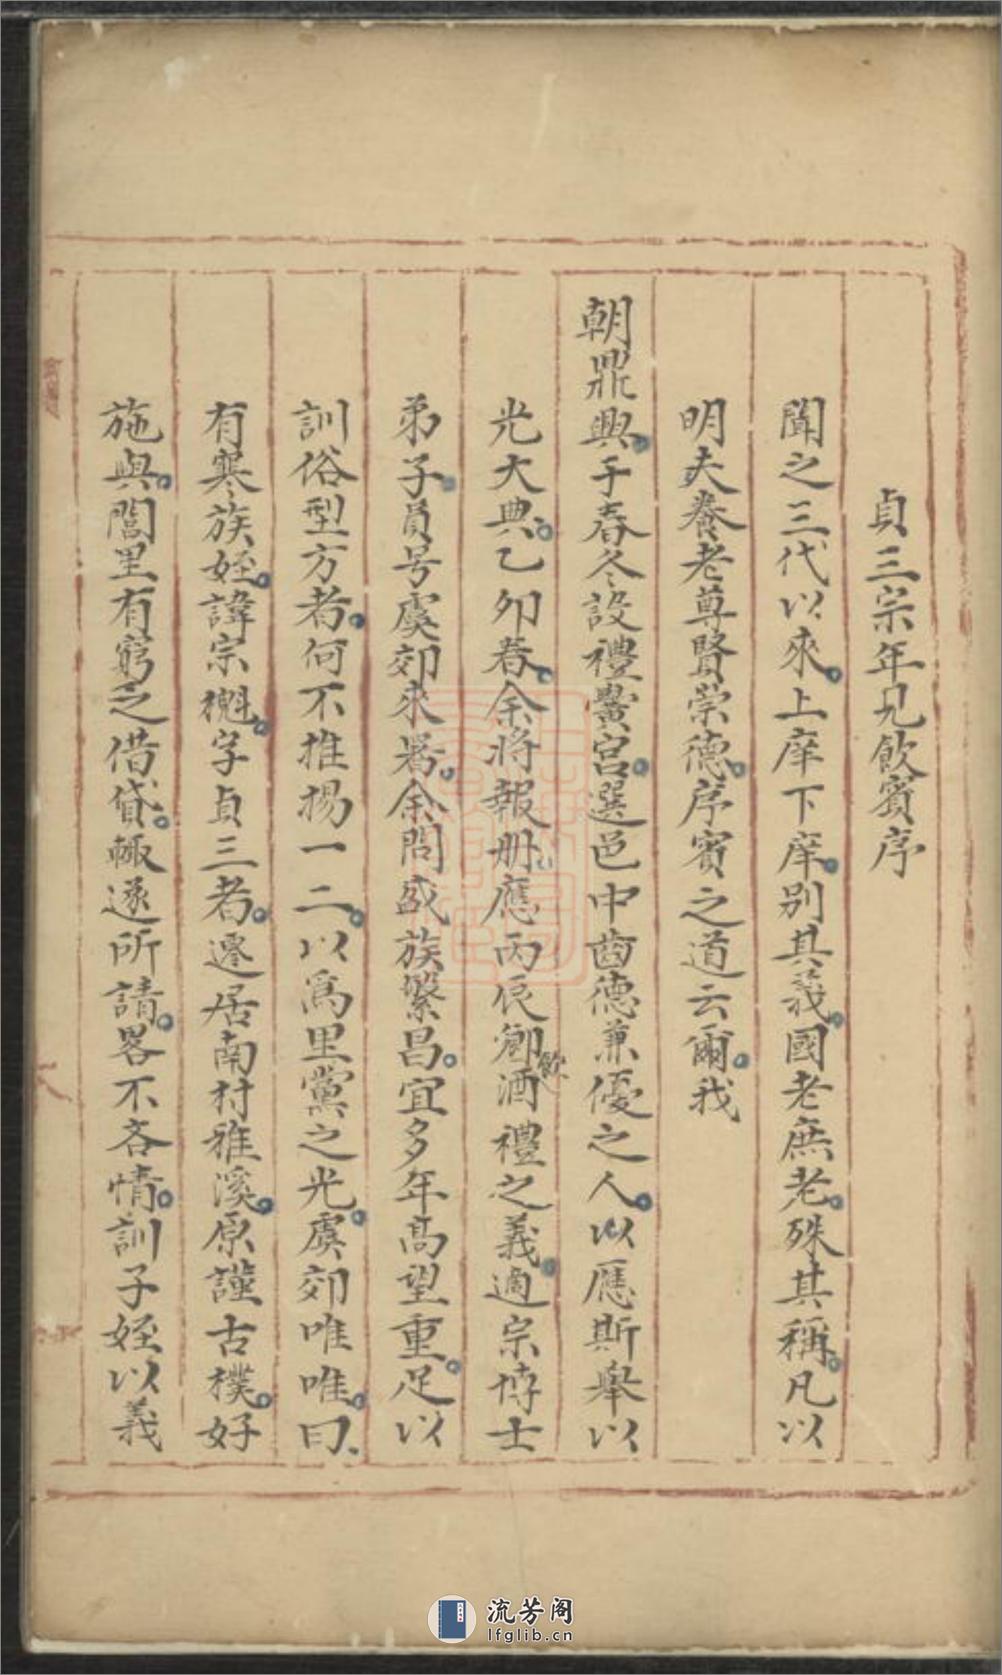 貞三宗年兄飲賓序
聞之三代以來上庠下庠別其義國老庶老殊其稱凡以
明夫養老尊賢崇德序賓之道云爾我
朝鼎興于春冬設禮黌宮選邑中齒德兼優之人以應斯舉以
光大典乙卯春余將報册應丙辰鄉飲酒禮之義適宗博士
弟子員号虞郊來署余問盛族繁昌宜多年高望重足以
訓俗型方者何不推揚一二以爲里黨之光虞郊唯唯曰
有寒族姪諱宗字貞三者遷居南村雅溪原謹古樸好
施與閭里有窮乏借貸輒遂所請畧不吝情訓子姪以義
流芳阁
lfglib.cn